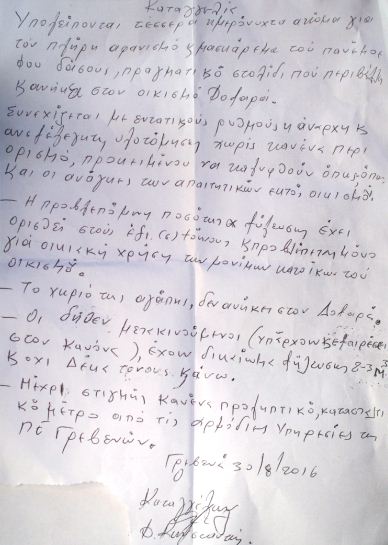 Καταγγελία
Υπολείπονται τέσσερα ημερόνυχτα ακόμα για
τον πλήρη αφανισμό κ μασκάρεμα του πανέμορ
φου δάσους, πραγματικό στολίδι που περιβάλλει
κ ανήκει στον οικισμό Δοξαρά.
Συνεχίζεται με εντατικούς ρυθμούς η άναρχη κ
ανεξέλεγκτη υλοτόμηση χωρίς κανένα περι
ορισμό, προκειμένου να καλυφθούν όπως όπως
και οι ανάγκες των απαιτητικών εκτός οικισμού.
– Η προβλεπόμενη ποσότητα ξύλευσης έχει
ορισθεί στους έξι (6) τόνους κ προβλέπεται μόνο
για οικιακή χρήση των μονίμων κατοίκων του
οικισμού.
– Το χωριό της αγάπης, δεν ανήκει στον Δοξαρά.
– Οι δήθεν μετακινούμενοι (υπάρχουν κ εξαιρέσεις
στον κανόνα), έχουν δικαίωμα ξύλωσης 2-3 Μ3
κ όχι Δέκα τόνους κ άνω.
– Μέχρι στιγμής κανένα προληπτικό, κατασταλτι
κό μέτρο από τις αρμόδιες Υπηρεσίες της
ΠΕ Γρεβενών.
Γρεβενά 30/8/2016
Καταγγέλλων